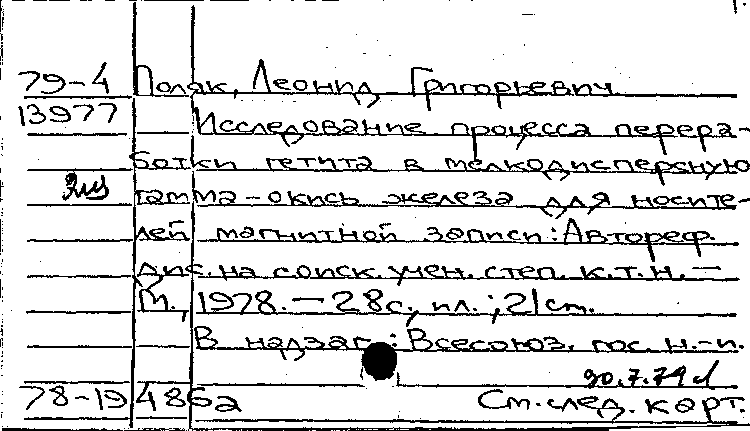 79-4 Поляк, Леонид Григорьевич
13977 Исследование процесса перера-
ботки гетита в мелкодисперсную
гамма-окись железа для носите-
лей магнитной записи: Автореф.
дис. на соиск. учен. степ. к.т.н. —
М., 1978. — 28с., ил.; 21 см.
В надзаг.: Всесоюз. гос. н.-и.
78-19486а См. след. карт.